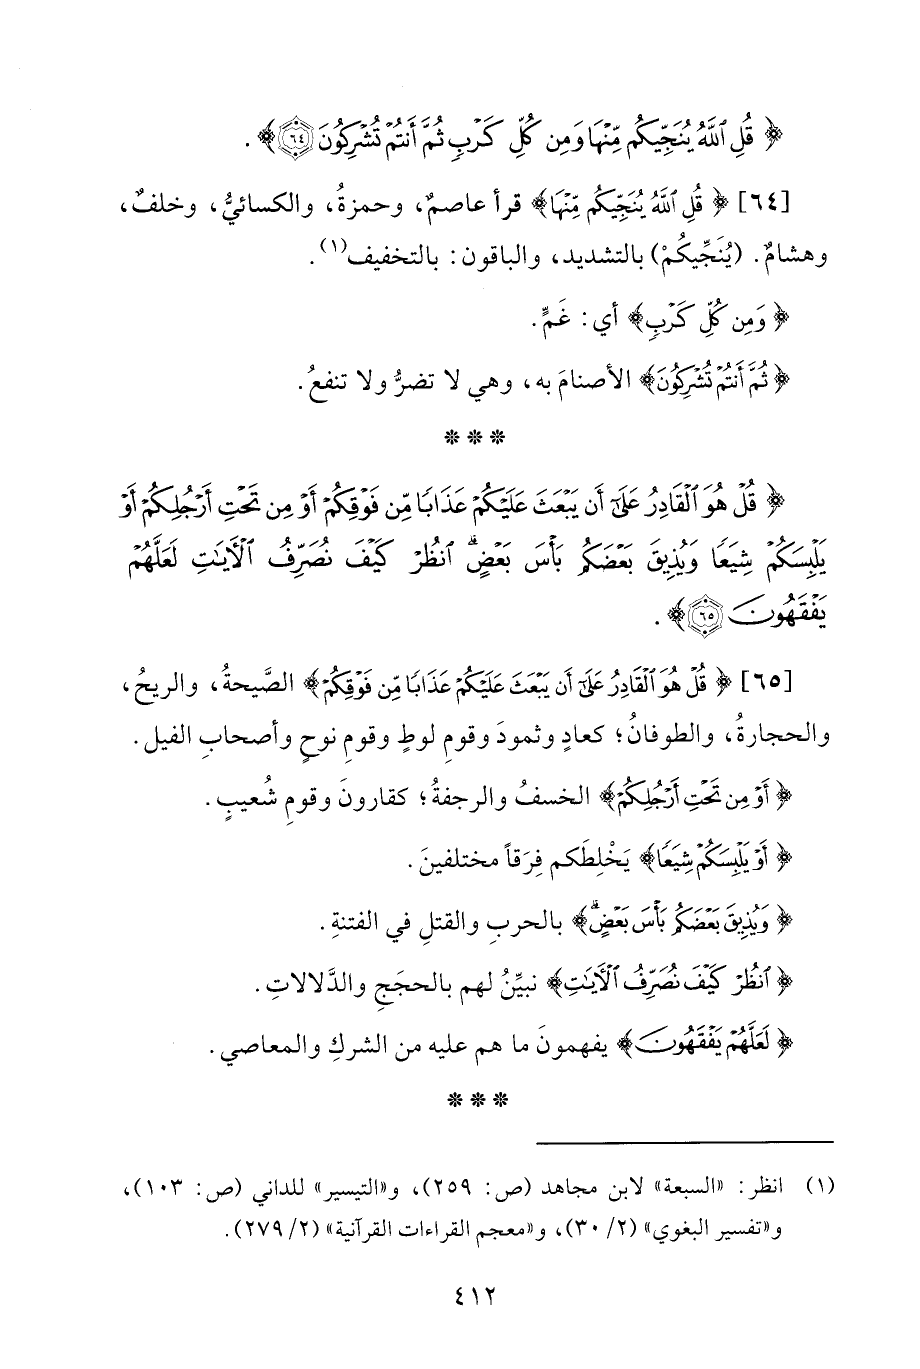 ﴿ قُلِ ٱللَّهُ يُنَجِّيكُم مِّنْهَا وَمِن كُلِّ كَرْبٍ ثُمَّ أَنتُمْ تُشْرِكُونَ ٦٤﴾ .
[٦٤] ﴿ قُلِ ٱللَّهُ يُنَجِّيكُم مِّنْهَا﴾ قرأ عاصمٌ، وحمزةُ، والكسائيُّ، وخلفٌ،
وهشامٌ. (يُنَجِّيكُمْ) بالتشديد، والباقون: بالتخفيف(١).
﴿ وَمِن كُلِّ كَرْبٍ﴾ أي: غَمٍّ.
﴿ ثُمَّ أَنتُمْ تُشْرِكُونَ﴾ الأصنامَ به، وهي لا تضرُّ ولا تنفعُ.
* * *
﴿ قُلْ هُوَ ٱلْقَادِرُ عَلَىٰٓ أَن يَبْعَثَ عَلَيْكُمْ عَذَابًا مِّن فَوْقِكُمْ أَوْ مِن تَحْتِ أَرْجُلِكُمْ أَوْ
يَلْبِسَكُمْ شِيَعًا وَيُذِيقَ بَعْضَكُم بَأْسَ بَعْضٍ ۗ ٱنظُرْ كَيْفَ نُصَرِّفُ ٱلْآيَٰتِ لَعَلَّهُمْ
يَفْقَهُونَ ٦٥﴾ .
[٦٥] ﴿ قُلْ هُوَ ٱلْقَادِرُ عَلَىٰٓ أَن يَبْعَثَ عَلَيْكُمْ عَذَابًا مِّن فَوْقِكُمْ﴾ الصَّيحةُ، والريحُ،
والحجارةُ، والطوفانُ؛ كعادٍ وثمودَ وقومِ لوطٍ وقومِ نوحٍ وأصحابِ الفيل.
﴿ أَوْ مِن تَحْتِ أَرْجُلِكُمْ﴾ الخسفُ والرجفةُ؛ كقارونَ وقومِ شُعيبٍ.
﴿ أَوْ يَلْبِسَكُمْ شِيَعًا﴾ يَخْلِطَكم فِرَقاً مختلفينَ.
﴿ وَيُذِيقَ بَعْضَكُم بَأْسَ بَعْضٍ ۗ﴾ بالحربِ والقتلِ في الفتنةِ.
﴿ ٱنظُرْ كَيْفَ نُصَرِّفُ ٱلْآيَٰتِ﴾ نبيِّنُ لهم بالحججِ والدَّلالاتِ.
﴿ لَعَلَّهُمْ يَفْقَهُونَ﴾ يفهمونَ ما هم عليه من الشركِ والمعاصي.
* * *
(١) انظر: «السبعة» لابن مجاهد (ص: ٢٥٩)، و«التيسير» للداني (ص: ١٠٣)،
و«تفسير البغوي» (٢/ ٣٠)، و«معجم القراءات القرآنية» (٢/ ٢٧٩).
٤١٢